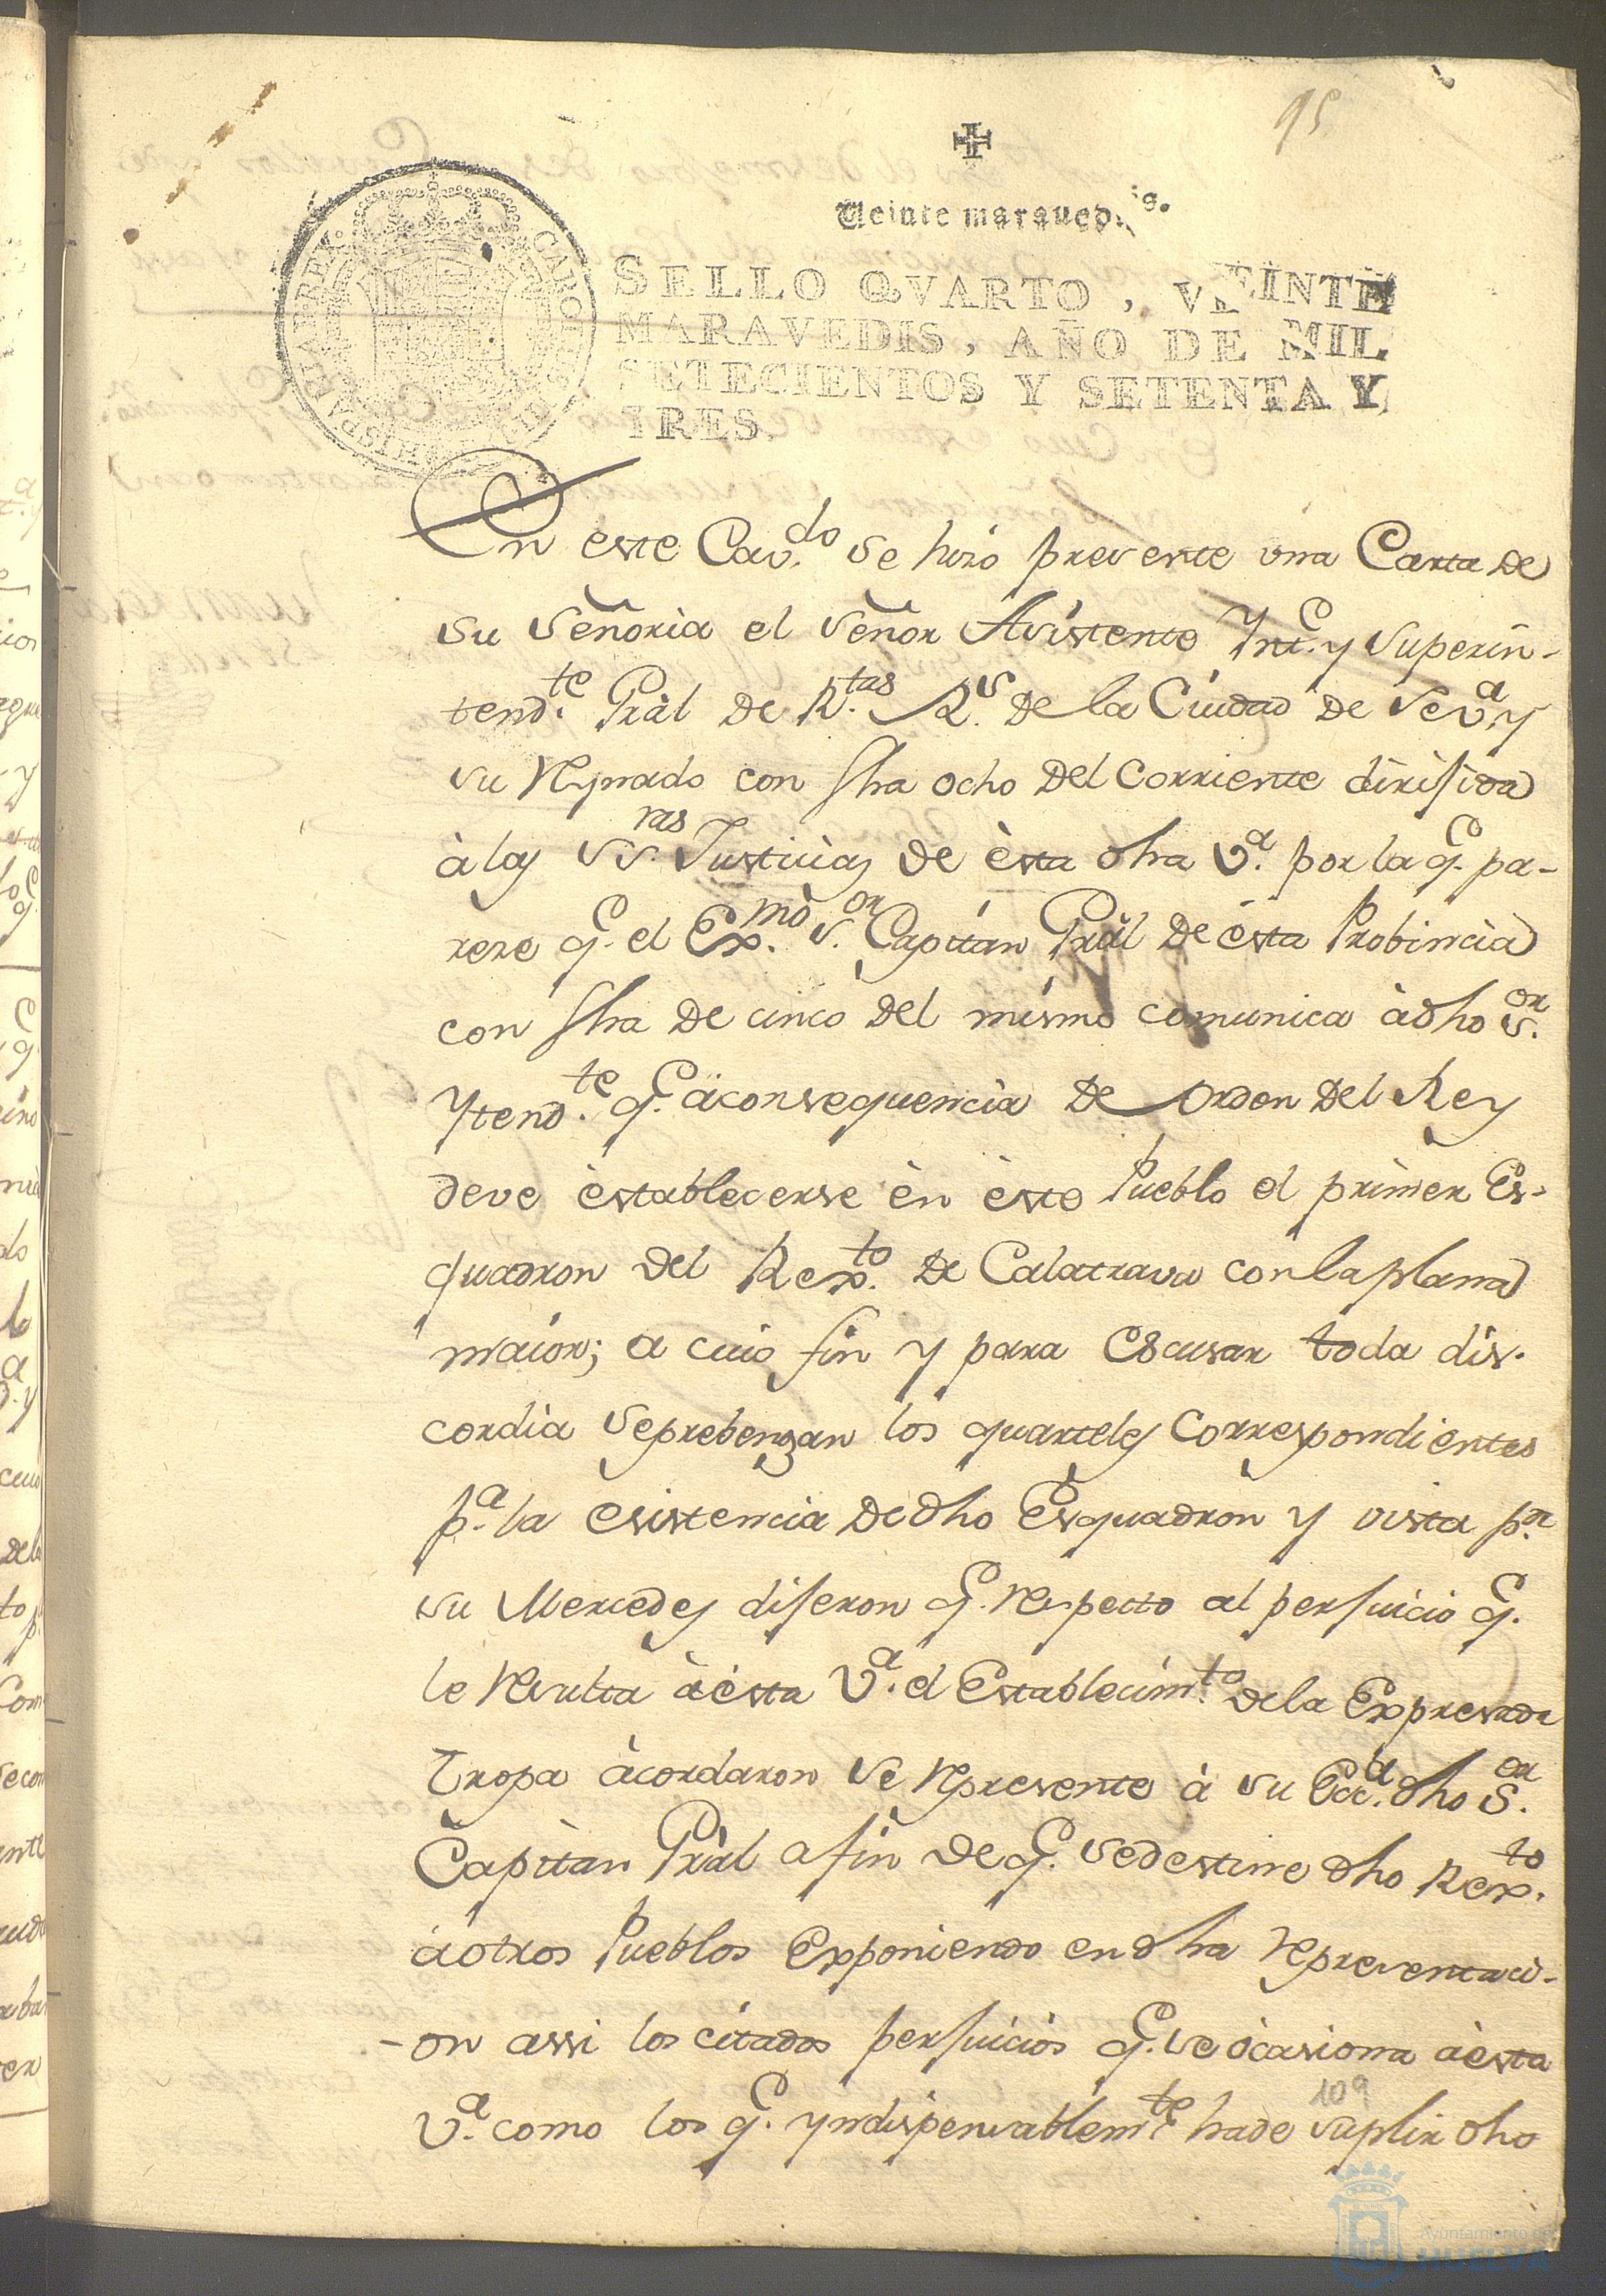 95
Veinte maravedis.
SELLO QVARTO, VEINTE
MARAVEDIS, AÑO DE MIL
SETECIENTOS Y SETENTA Y
TRES.
En este Cav.do se hizo presente vna Carta de
su señoria el señor Asistente Ynt.e y superin-
tend.te Gràl de R.tas R.s de la Ciudad de Sev.a y
su Reynado con fha ocho del corriente dirijida
à las SS.ras Justicias de èsta dha V.a por la q.e pa-
rece q.e el Ex.mo S.or Capitàn Gràl de èsta Probincia
con fha de cinco del mismo comunica à dho S.or
Ytend.te q.e à consequencia de orden del Rey
deve èstablecerse èn èste Pueblo el primer Es-
quadron del Rex.to de Calatrava con la plana
maior; a cuio fin y para escusar toda dis-
cordia se prebengan los quarteles correspondientes
p.a la esistencia de dho Esquadron y vista p.r
su Mercedes dijeron q.e respecto al perjuicio q.e
le resulta à èsta V.a el establecim.to de la Expresada
tropa àcordaron se represente à su Exc.a dho S.or
Capitàn Gràl a fin de q.e se destine dho Rex.to
à otros Pueblos Exponiendo en dha representaci-
-on assi los citados perjuicios q.e se òcasiona à èsta
V.a como los q.e yndispensablem.te ha de suplir dho
109
Ayuntamiento de
HUELVA